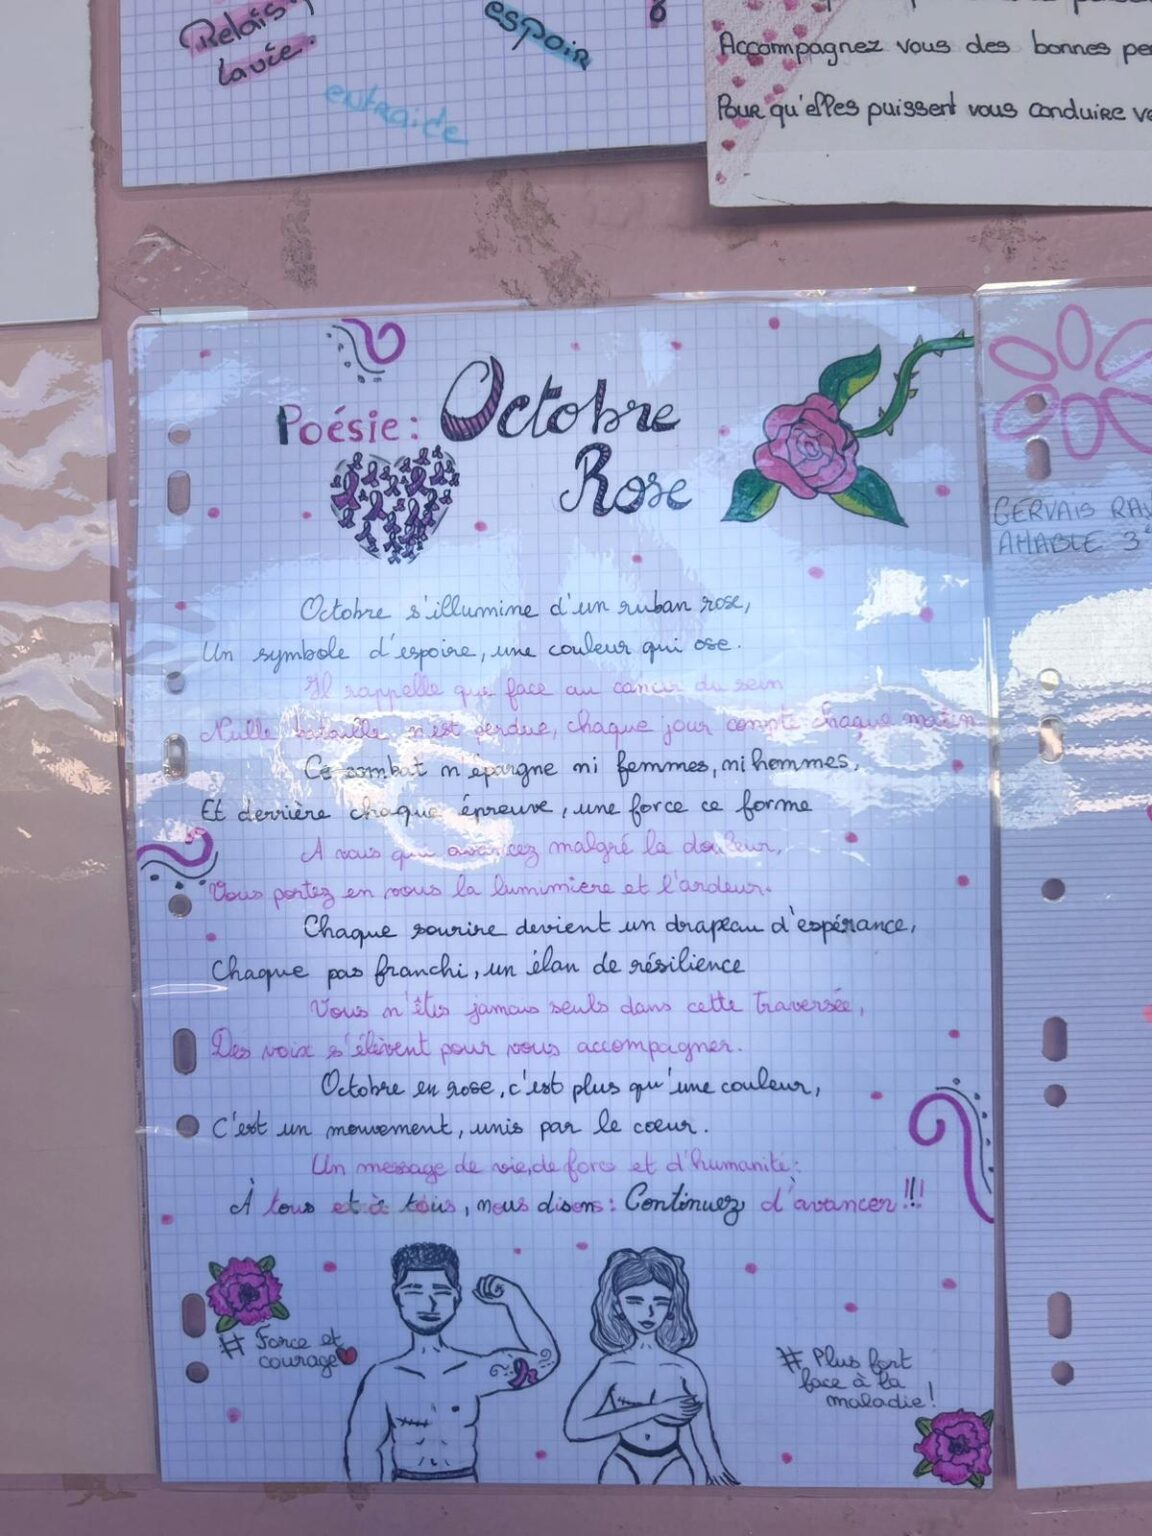 Relais
la vie.
espoir
entraide
Accompagnez vous des bonnes
Pour qu'elles puissent vous conduire
Poésie : Octobre
Rose
GERVAIS
AMABLE 3
Octobre s'illumine d'un ruban rose,
Un symbole d'espoire, une couleur qui ose.
Il rappelle que face au cancer du sein
Nulle bataille n'est perdue, chaque jour compte chaque matin
Ce combat n'épargne ni femmes, ni hommes,
Et derrière chaque épreuve, une force ce forme
A vous qui avancez malgré la douleur,
Vous portez en vous la lumimière et l'ardeur.
Chaque sourire devient un drapeau d'espérance,
Chaque pas franchi, un élan de résilience
Vous n'êtes jamais seuls dans cette traversée,
Des voix s'élèvent pour vous accompagner.
Octobre en rose, c'est plus qu'une couleur,
C'est un mouvement, unis par le coeur.
Un message de vie, de force et d'humanité :
À tous et à tous, nous disons : Continuez d'avancer !!!
# Force et
courage
# Plus fort
face à la
maladie !